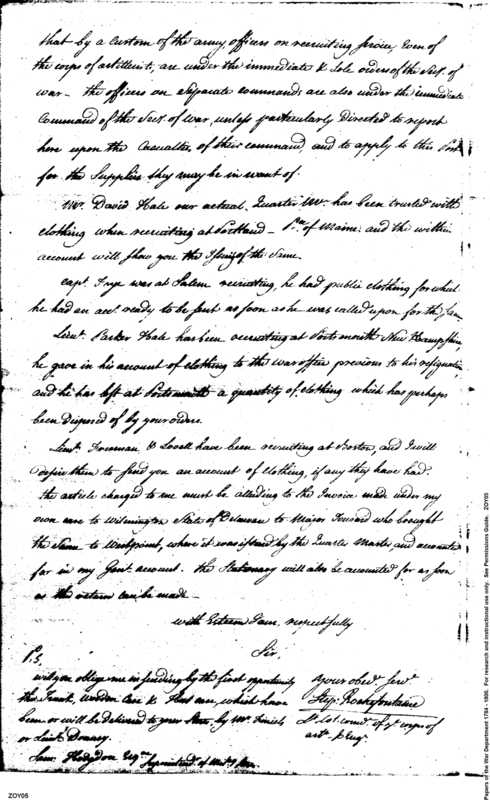 that by a Custom of the army, officers on recruiting Service, even of
the corps of artillerists, are under the immediate & Sole orders of the Secy. of
war – the officers on Separate command are also under the immediate
Command of the Secy. of war, unless particularly directed to report
here upon the Casualties of their command, and to apply to this Post
for the Supplies they may be in want of.
Mr. David Hale our actual Quarter Mr. has been trusted with
clothing when recruiting at Portland – of Maine: and the within
account will show you the Issuing of the Same –
Capt. Frye was at Salem recruiting, he had public clothing for which
he had an acct. ready to be sent as soon as he was called upon for the Same
Lieut. Parker Hale has been recruiting at Portsmouth New Hampshire
he gave in his account of clothing to the war office previous to his resignation
and he has left at Portsmouth a quantity of clothing which has perhaps
been disposed of by your orders.
Lieuts. Freeman & Lovell have been recruiting at Boston, and I will
desire them to send you an account of clothing, if any they have had.
the article charged to me must be alluding to the Invoice made under my
own care to Wilmington State of Delaware to Major Toussard who brought
the Same to Westpoint, where it was issued by the Quarter Master, and accounted
for in my Genl. account. the Stationary will also be accounted for as soon
as the return can be made –
with Esteem I am respectfully
Sir,
Your obedt. Servt.
Step. Rochefontaine
Lt. Col. comdt. of ye corps of
artts. & Engs.
P.S.
will you oblige me in sending by the first opportunity
the Trunk, wooden Case & which have
been or will be delivered to your Store by Mr. Finiels
or Lieut. Demarcy.
Saml. Hodgdon Esqre Superintendt. of Milty. Stores
ZOY05
Papers of the War Department 1784 - 1800. For research and instructional use only. See Permissions Guide. ZOY05